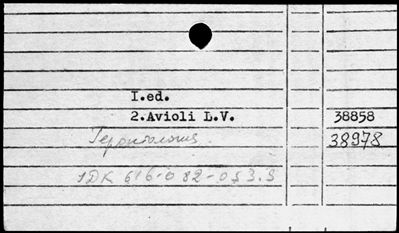 I.ed.
2.Avioli L.V. 38858
Геронтология. 38978
УДК 616-082-053.9